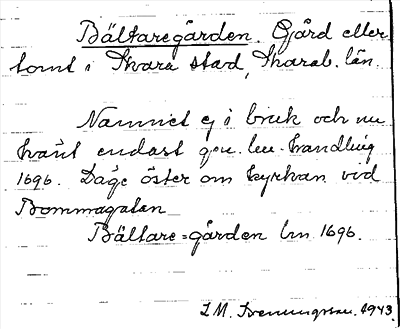 Bältaregården. Gård eller
tomt i Skara stad, Skarab. län.
Namnet ej i bruk och nu
känt endast gm. en handling
1696. Läge öster om kyrkan vid
Bommagatan
Bältare=gården hn 1696.
I M. Svenungsson. 1943.